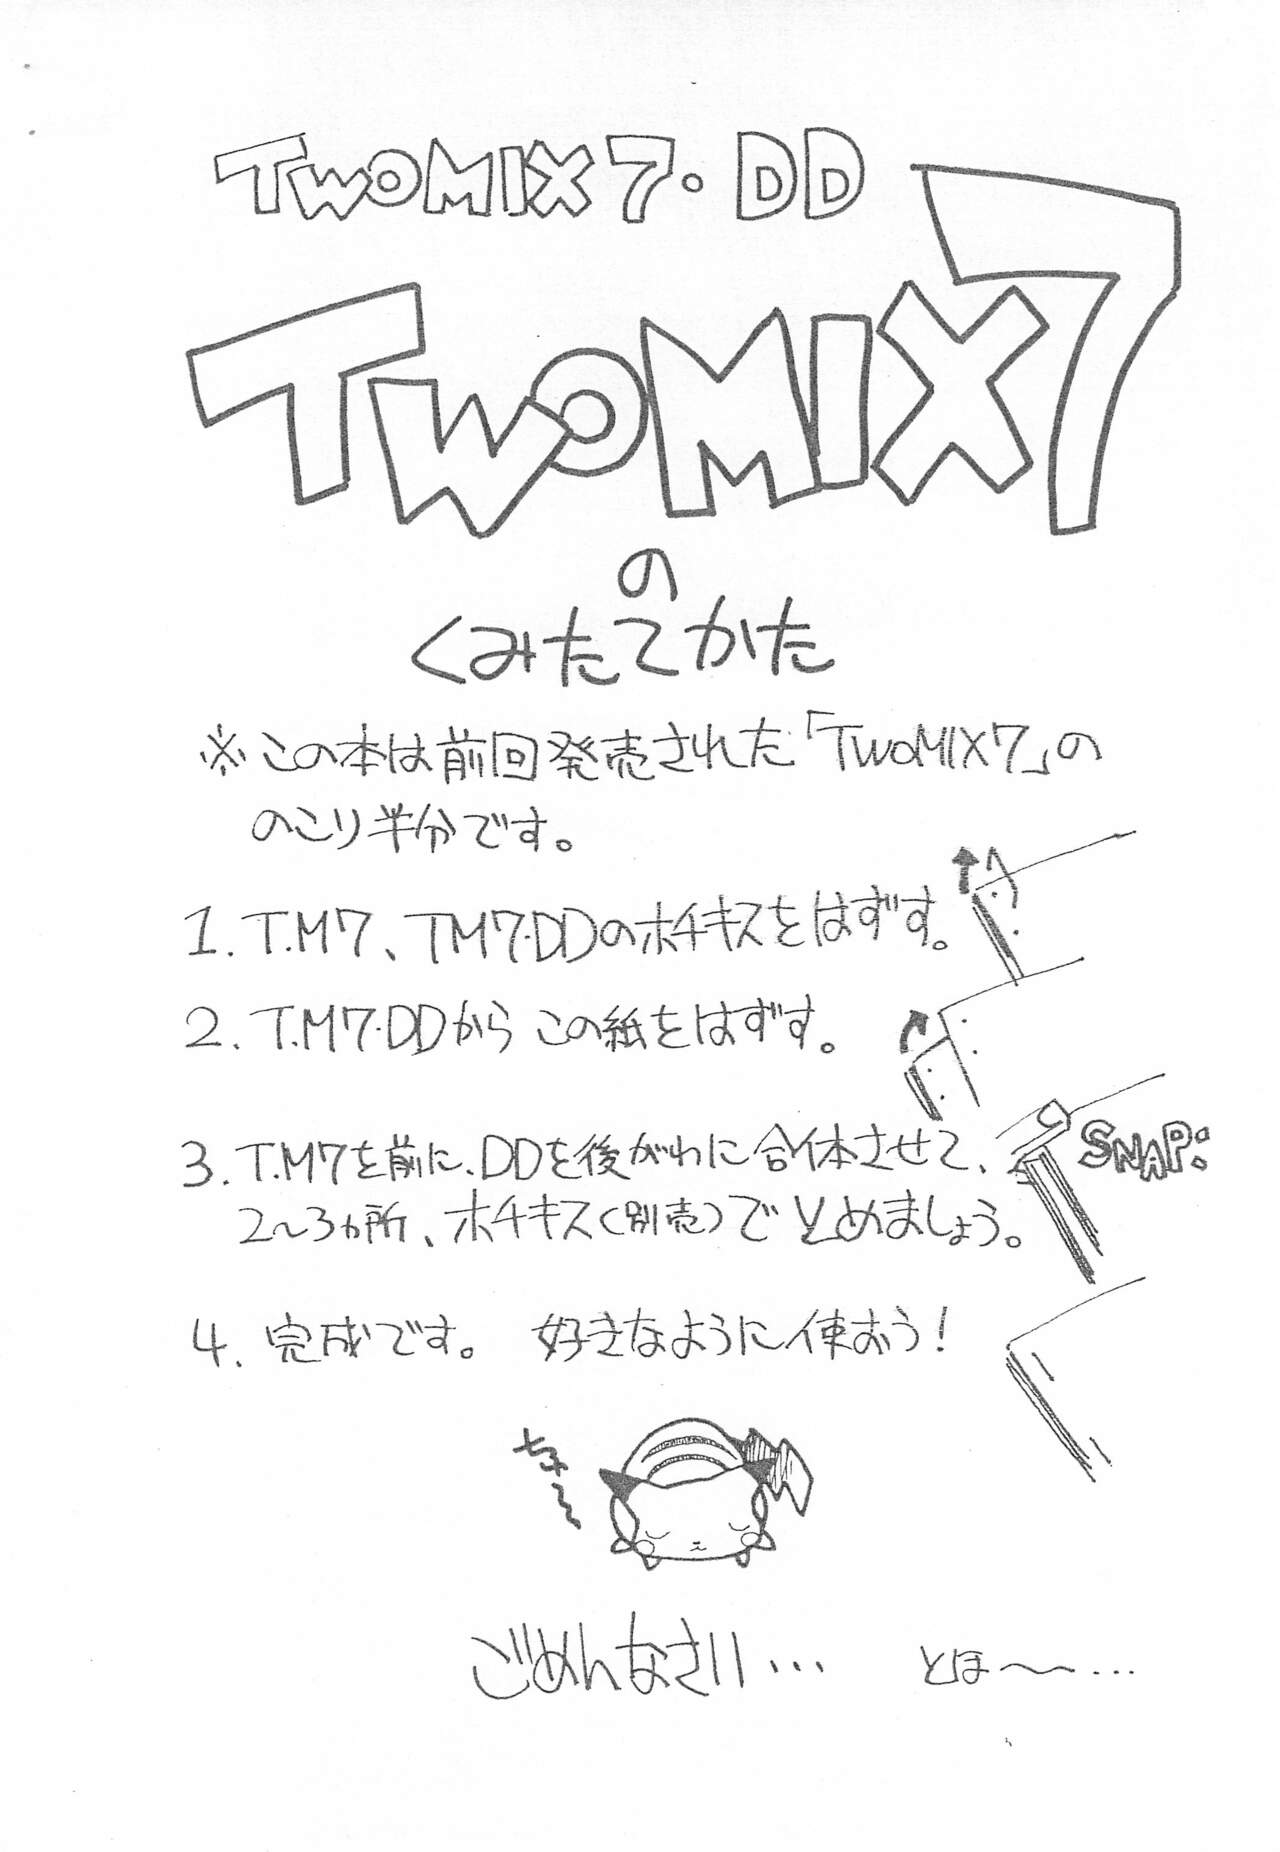 TWOMIX 7・DD
TWOMIX7
の
くみたてかた
※この本は前回発売された「TWOMIX7」の
のこり半分です。
1. T.M7、TM7・DDのホチキスをはずす。
2. T.M7・DDから この紙をはずす。
3. T.M7を前に、DDを後がわに合体させて、
SNAP!
2〜3ヵ所、ホチキス(別売)でとめましょう。
4. 完成です。 好きなように使おう!
ごめんなさい… とほ〜〜…